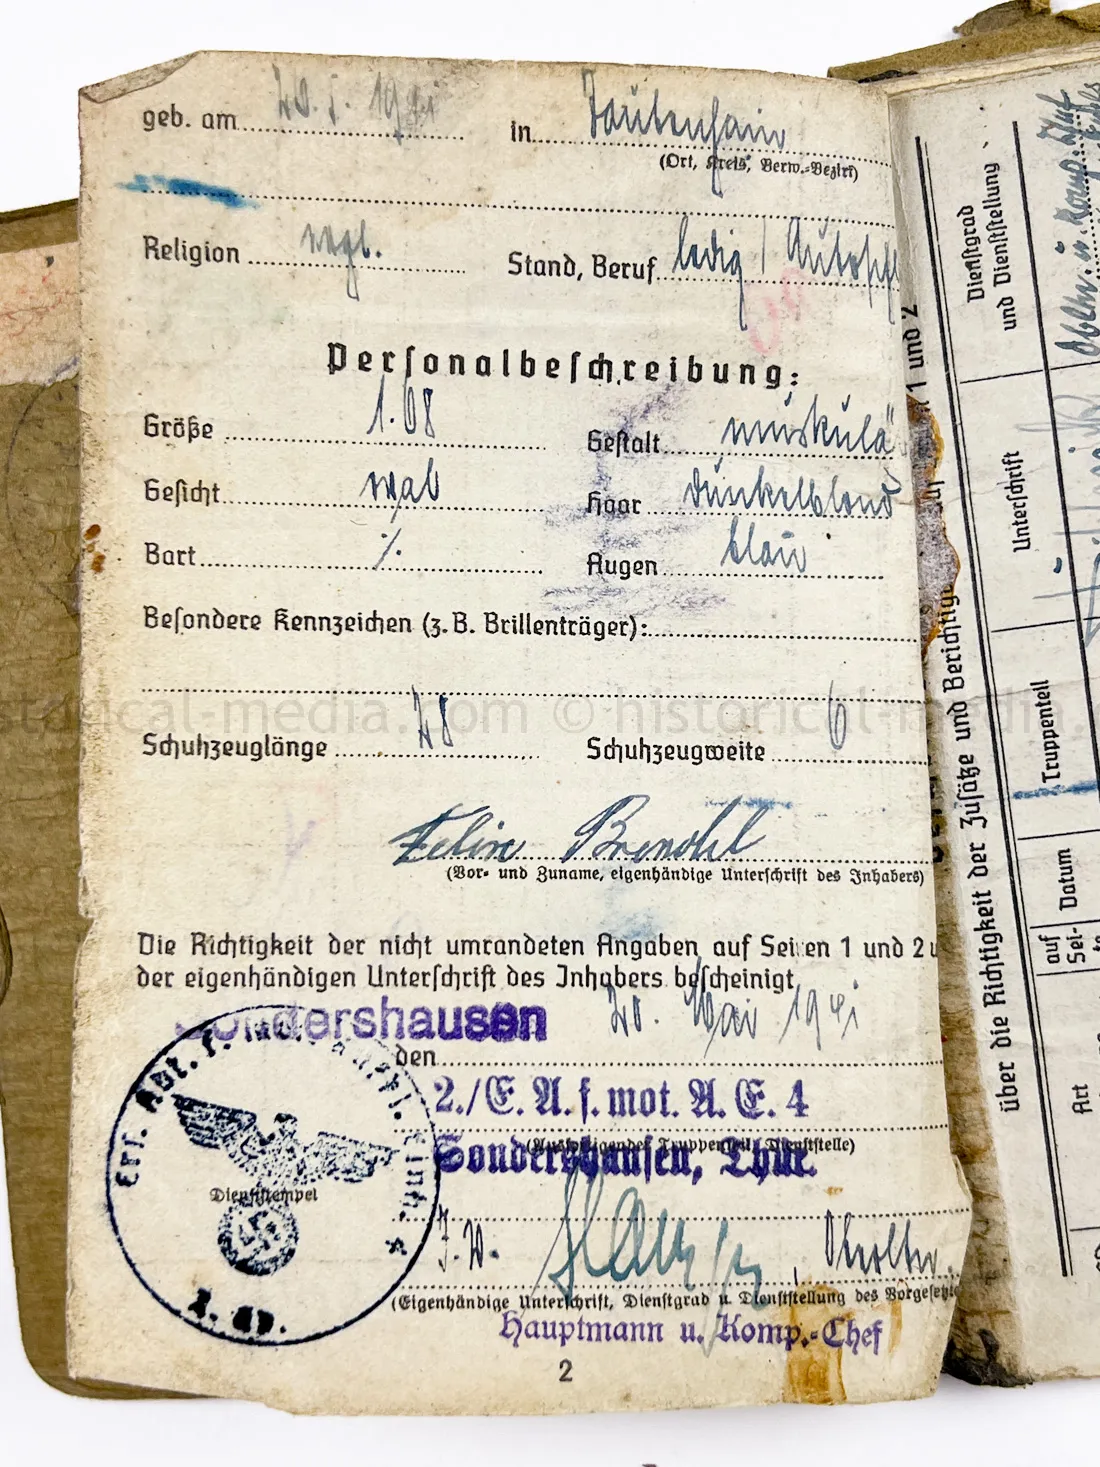 geb. am 20. 5. 19 in Tautenhain
(Ort, Kreis, Verw.-Bezirk)
Religion evgl. Stand, Beruf ledig / Autosch
Personalbeschreibung:
Größe 1.68 Gestalt muskulä
Gesicht oval Haar dunkelblond
Bart ⁒ Augen blau
Besondere Kennzeichen (z. B. Brillenträger):
historical-media.com © historical-media.c
Schuhzeuglänge 28 Schuhzeugweite 6
Brendel
(Vor- und Zuname, eigenhändige Unterschrift des Inhabers)
Die Richtigkeit der nicht umrandeten Angaben auf Seiten 1 und 2 u
der eigenhändigen Unterschrift des Inhabers bescheinigt
Sondershausen den 20. Mai 1941
2./E. A. f. mot. A. E. 4
(Ausfertigender Truppenteil, Dienststelle)
Sondershausen, Thür.
Dienststempel
I. V.
(Eigenhändige Unterschrift, Dienstgrad u. Dienststellung des Vorgesetzte
Hauptmann u. Komp.-Chef
2
über die Richtigkeit der Zusätze und Berichtig auf 1 und 2
Art
auf Sei-
Datum
Truppenteil
Unterschrift
Dienstgrad
und Dienststellung